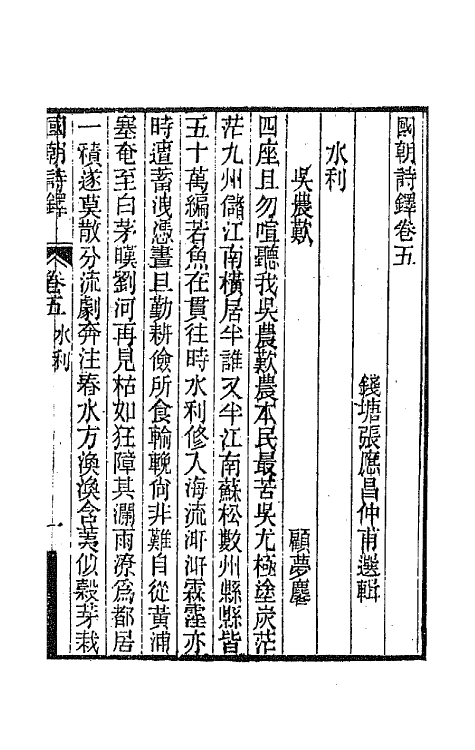 國朝詩鐸卷五
錢塘張應昌仲甫選輯
水利
吳農歎
顧夢麐
四座且勿喧聽我吳農歎農本民最苦吳尤極塗炭茫
茫九州儲江南橫居半誰又半江南蘇松數州縣縣皆
五十萬編若魚在貫往時水利修入海流汧汧霖霪亦
時遣蓄洩憑晝旦勤耕儉所食輸輓尙非難自從黃浦
塞奄至白茅暵劉河再見枯如狂障其瀾雨潦爲都居
一積遂莫散分流劇奔注春水方渙渙含荑似穀芽栽
國朝詩鐸
卷五
水利
一